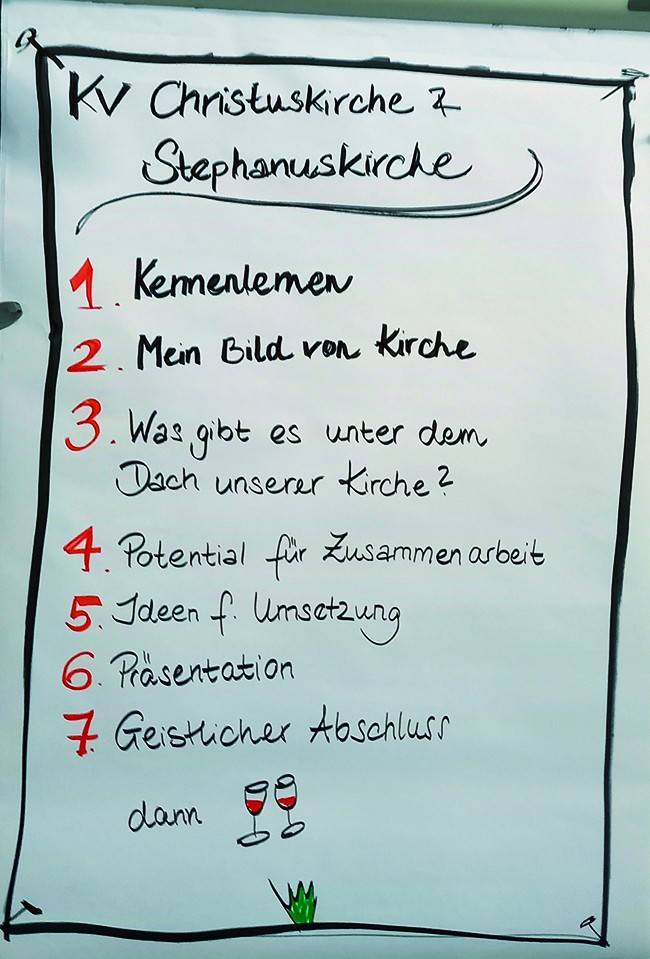 KV Christuskirche &
Stephanuskirche
1. Kennenlernen
2. Mein Bild von Kirche
3. Was gibt es unter dem
Dach unserer Kirche?
4. Potential für Zusammenarbeit
5. Ideen f. Umsetzung
6. Präsentation
7. Geistlicher Abschluss
dann